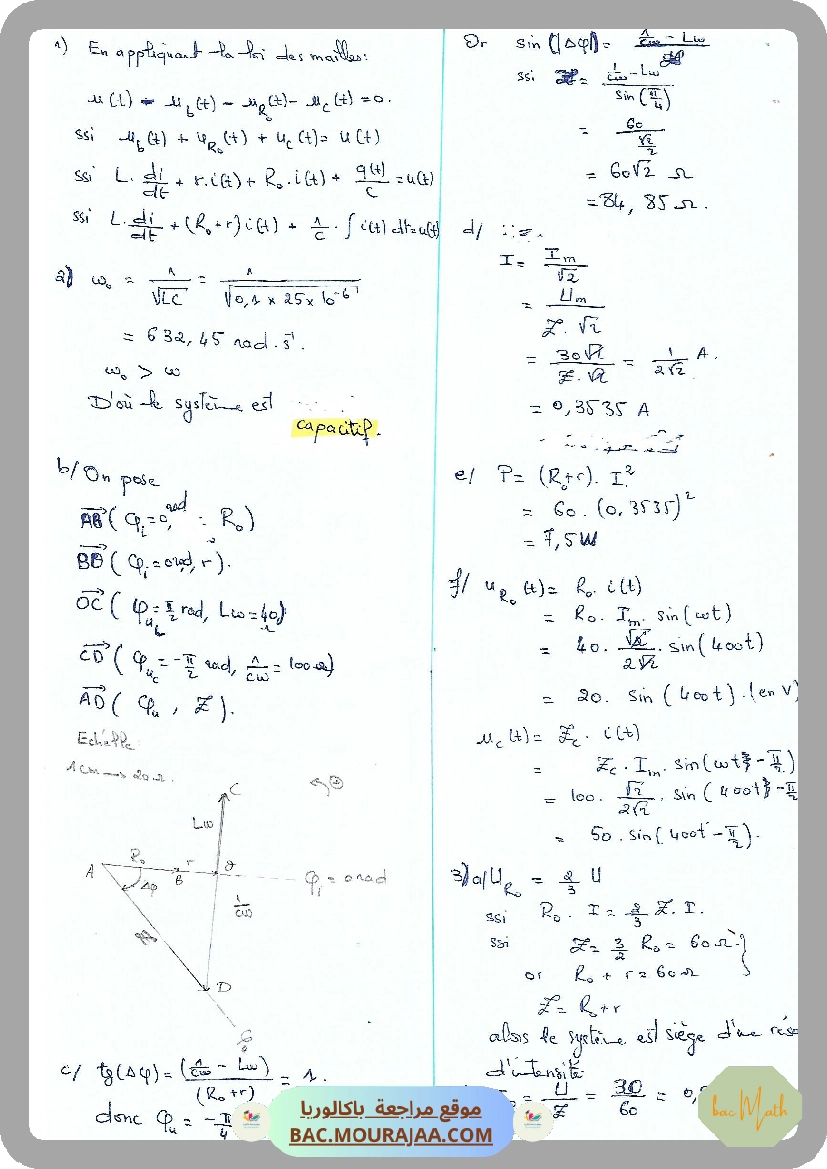 1) En appliquant la loi des mailles:
u(t) - u_b(t) - u_R₀(t) - u_c(t) = 0.
ssi u_b(t) + u_R₀(t) + u_c(t) = u(t)
ssi L. di/dt + r.i(t) + R₀.i(t) + q(t)/C = u(t)
ssi L. di/dt + (R₀+r) i(t) + 1/C . ∫ i(t) dt = u(t)
2) ω₀ = 1/√LC = 1/√(0,1 × 25 × 10⁻⁶)
= 632,45 rad.s⁻¹.
ω₀ > ω
D'où le système est
capacitif.
b/ On pose
AB→ ( φi = 0 rad, R₀)
BO→ ( φi = 0 rad, r).
OC→ ( φ_uL = π/2 rad, Lω = 40 Ω)
CD→ ( φ_uc = -π/2 rad, 1/Cω = 100 Ω)
AD→ ( φu , Z ).
Echelle:
1cm → 20 Ω.
C
⊕
Lω
A R₀ r O
B
Δφ
φi = 0 rad
1/Cω
D
c/ tg(Δφ) = (1/Cω - Lω)/(R₀+r) = 1.
donc φu = -π/4
Or sin(|Δφ|) = (1/Cω - Lω)/Z
ssi Z = (1/Cω - Lω)/sin(π/4)
= 60/(√2/2)
= 60√2 Ω
= 84,85 Ω.
d/
I = Im/√2
= Um/(Z.√2)
= 30√2/(Z.√2) = 1/(2√2) A.
= 0,3535 A
e/ P = (R₀+r). I²
= 60. (0,3535)²
= 7,5 W
f/ u_R₀(t) = R₀. i(t)
= R₀. Im. sin(ωt)
= 40. √2/(2√2) . sin(400t)
= 20. sin(400t). (en V)
u_c(t) = Z_c. i(t)
= Z_c. Im. sin(ωt - π/2)
= 100. √2/(2√2) . sin(400t - π/2
= 50. sin(400t - π/2).
3) a/ U_R₀ = 2/3 U
ssi R₀. I = 2/3 Z. I.
ssi Z = 3/2 R₀ = 60 Ω }
or R₀ + r = 60 Ω
Z = R₀+r
alors le système est siège d'une réso
d'intensité
= U/Z = 30/60 = 0,
موقع مراجعة باكالوريا
BAC.MOURAJAA.COM
bac Math